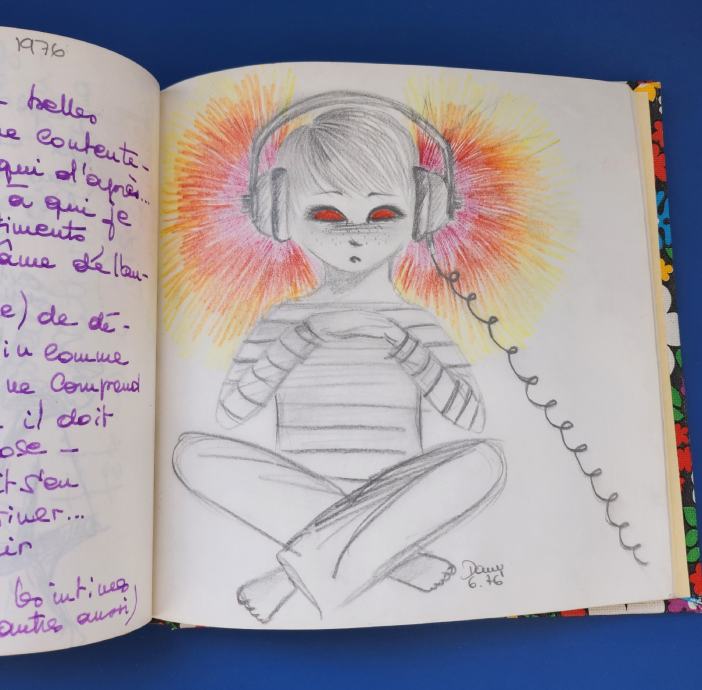 1976
belles
contente-
qui d'après...
à qui je
timents
âme de l'en-
e) de dé-
in comme
ne comprend
il doit
ose -
it s'en
riner...
ir
les intimes
autres aussi)
Dany
6.76